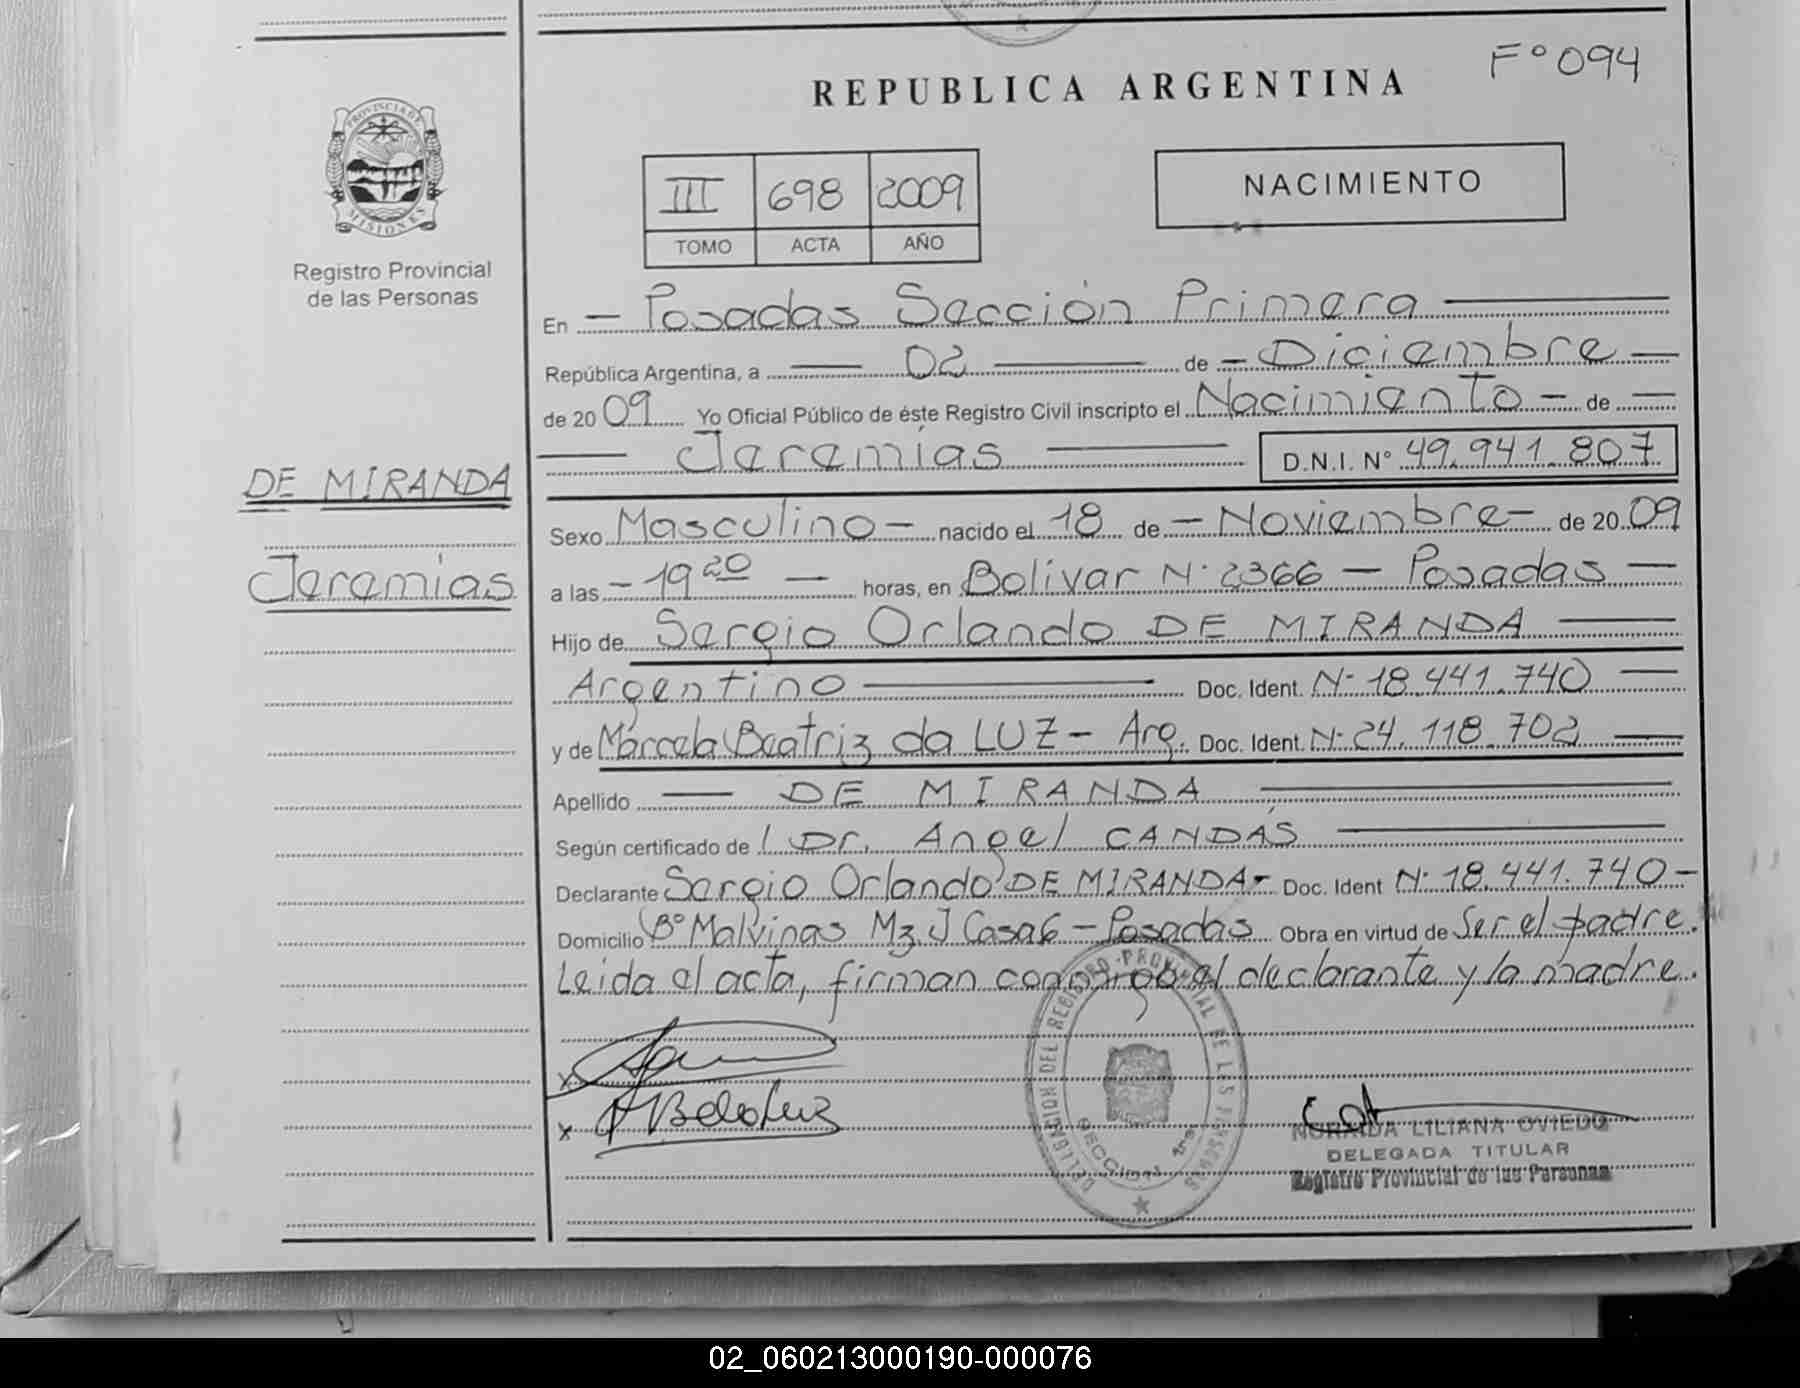 Fº 094
REPUBLICA ARGENTINA
PROVINCIA DE MISIONES
Registro Provincial
de las Personas
III 698 2009
TOMO ACTA AÑO
NACIMIENTO
En — Posadas Sección Primera —
República Argentina, a — 02 — de — Diciembre —
de 20 09 Yo Oficial Público de éste Registro Civil inscripto el Nacimiento — de —
— Jeremías — D.N.I. Nº 49.941.807
DE MIRANDA
Jeremías
Sexo Masculino — nacido el 18 de — Noviembre — de 20 09
a las — 19 20 — horas, en Bolivar Nº 2366 — Posadas —
Hijo de Sergio Orlando DE MIRANDA —
Argentino — Doc. Ident. Nº 18.441.740 —
y de Marcela Beatriz da LUZ — Arg. Doc. Ident. Nº 24.118.702 —
Apellido — DE MIRANDA —
Según certificado de / Dr. Angel CANDÁS —
Declarante Sergio Orlando DE MIRANDA — Doc. Ident Nº 18.441.740 —
Domicilio Bº Malvinas Mz. J Casa 6 — Posadas Obra en virtud de Ser el padre.
Leida el acta, firman conmigo el declarante y la madre.
x
x
DELEGACION DEL REGISTRO PROVINCIAL DE LAS PERSONAS
SECCION 1ra
LILIANA OVIEDO
DELEGADA TITULAR
Registro Provincial de las Personas
02_060213000190-000076